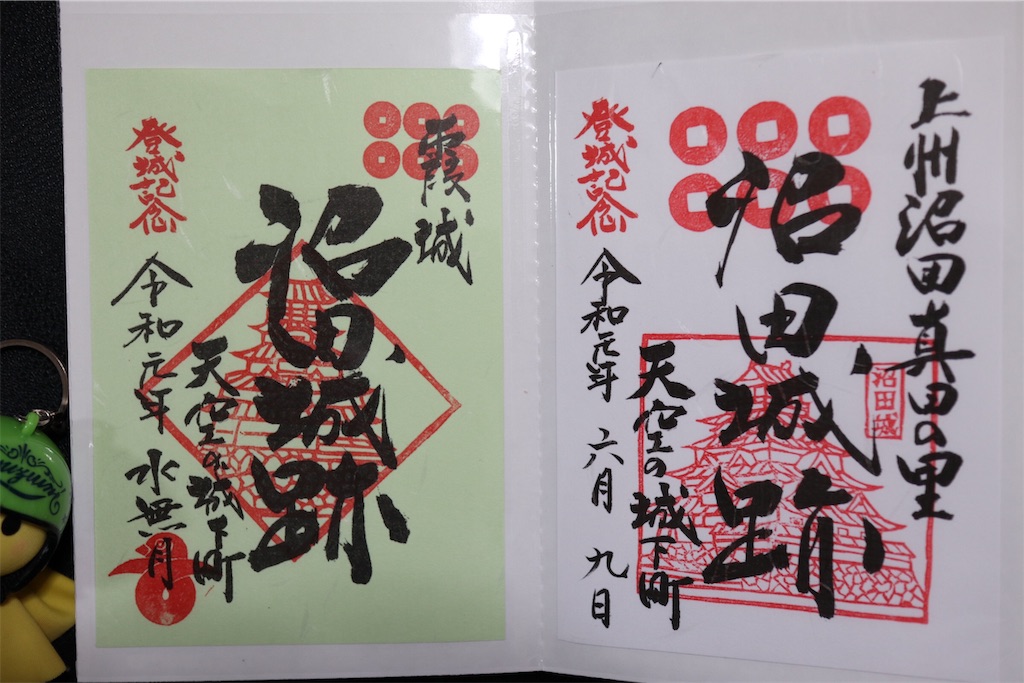 霞城
沼田城跡
天空の城下町
登城記念
令和元年 水無月
上州沼田真田の里
沼田城跡
沼田城
天空の城下町
登城記念
令和元年 六月 九日